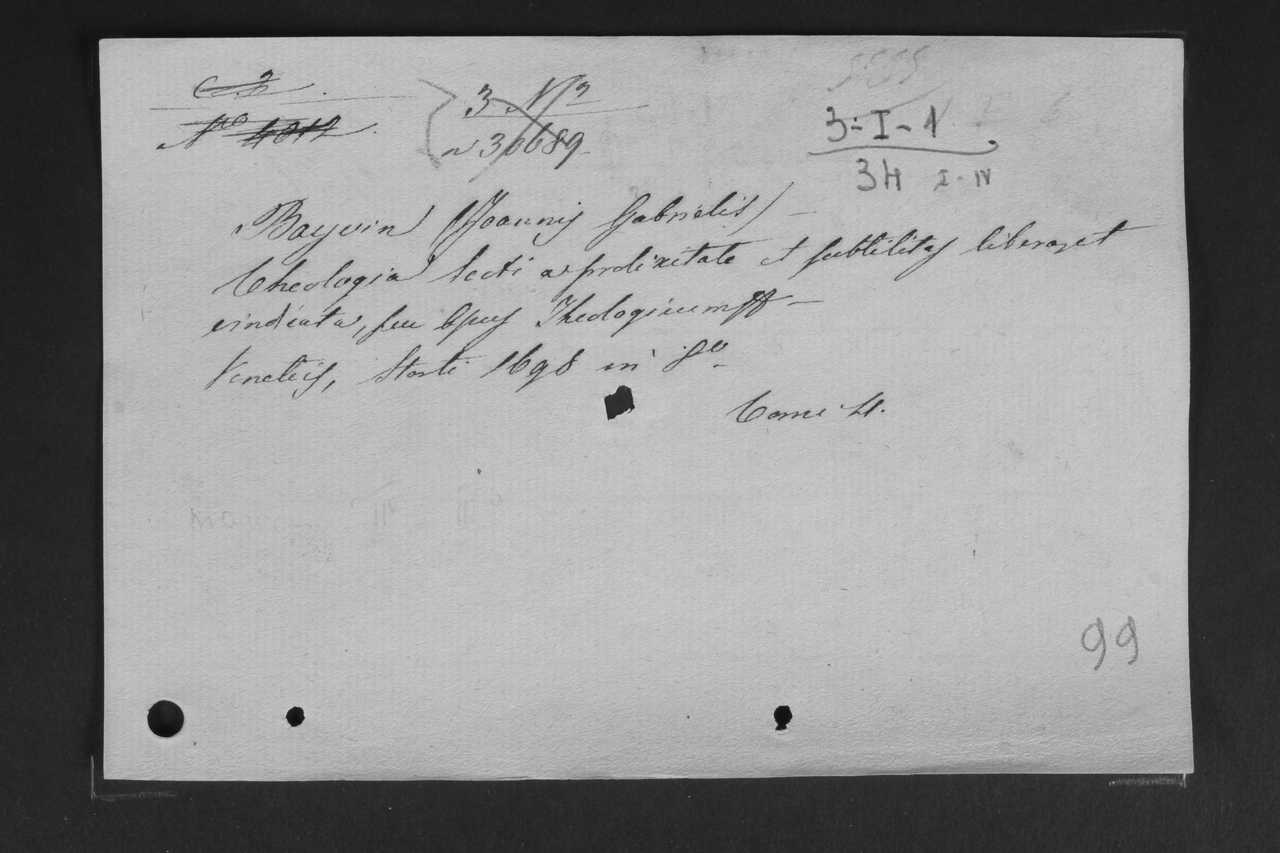 3 N 2
N 30689
3-I-1
34 I-IV
Boyvin (Joannis Gabrielis) -
Theologia Scoti a prolixitate et subtilitas liberaget
vindicata, seu Opus Theologicum ff -
Venetiis, Storti 1698 in 8º
Tomi 4.
99